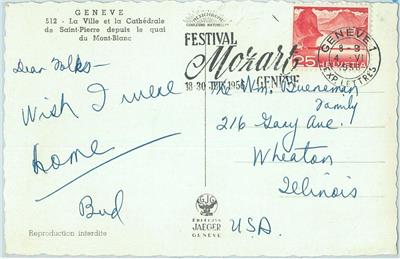 GENÈVE
512 - La Ville et la Cathédrale
de Saint-Pierre depuis le quai
du Mont-Blanc
FESTIVAL
Mozart
18-30 JUIN 1956 GENÈVE
GENÈVE 1
EXP. LETTRES
25 HELVETIA
Dear Folks -
Wish I were
home
Bud
The Wm. Bueneman
Family
216 Gary Ave.
Wheaton
Illinois
U.S.A.
ÉDITIONS
JAEGER
GENÈVE
Reproduction interdite